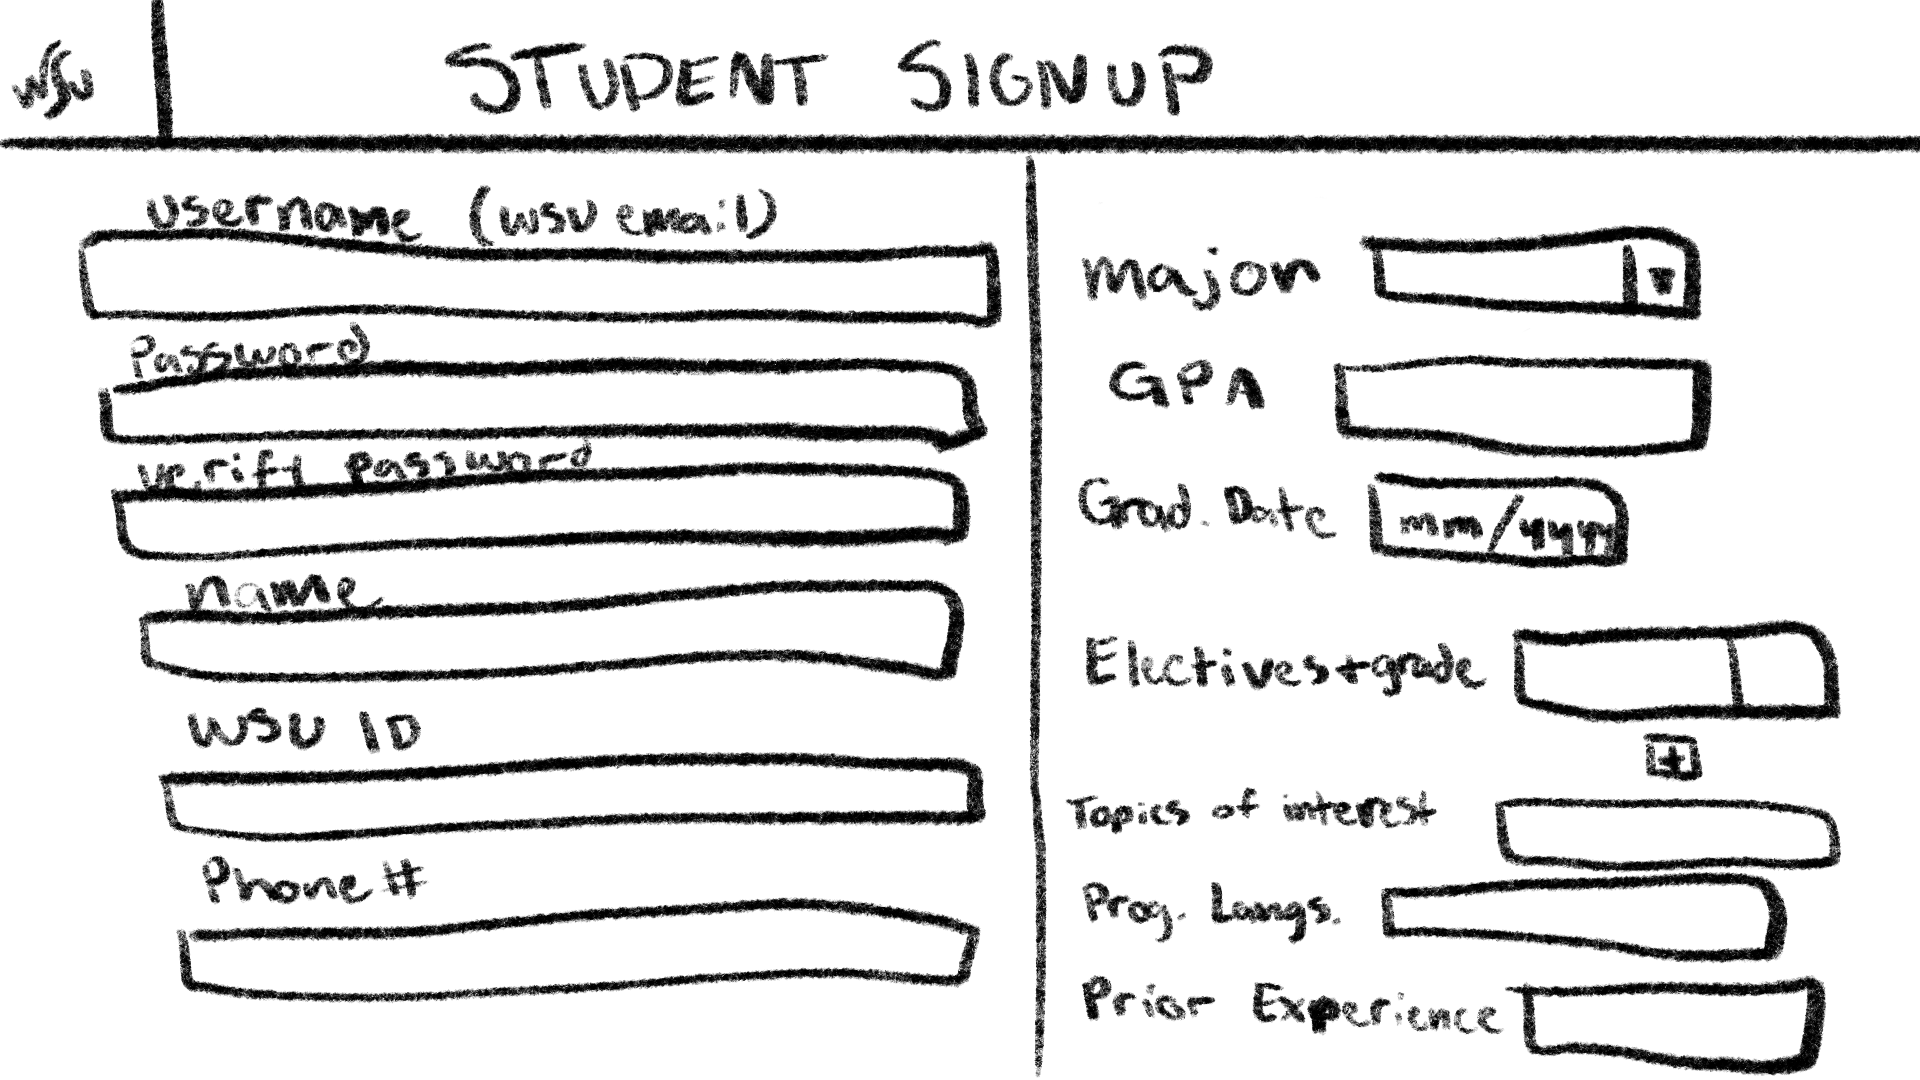 WSU
STUDENT SIGNUP
username (wsu email)
Password
verify password
name
WSU ID
Phone #
major
GPA
Grad. Date mm/yyyy
Electives+grade
+
Topics of interest
Prog. Langs.
Prior Experience